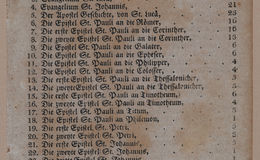 4. Evangelium St. Johannis, 21
5. Der Apostel Geschichte, von St. Lucä, 28
6. Die Epistel St. Pauli an die Römer, 16
7. Die erste Epistel St. Pauli an die Corinther, 16
8. Die zweyte Epistel St. Pauli an die Corinther, 13
9. Die Epistel St. Pauli an die Galater, 6
10. Die Epistel St. Pauli an die Epheser, 6
11. Die Epistel St. Pauli an die Philipper, 4
12. Die Epistel St. Pauli an die Colosser, 4
13. Die erste Epistel St. Pauli an die Thessalonicher,
14. Die zweyte Epistel St. Pauli an die Thessalonicher,
15. Die erste Epistel St. Pauli an Timotheum,
16. Die zweyte Epistel St. Pauli an Timotheum, 4
17. Die Epistel St. Pauli an Titum,
18. Die Epistel St. Pauli an Philemon, 1
19. Die erste Epistel St. Petri,
20. Die zweyte Epistel St. Petri,
21. Die erste Epistel St. Johannis,
22. Die zweyte Epistel St. Johannis,
Die dritte Epistel St. Johannis